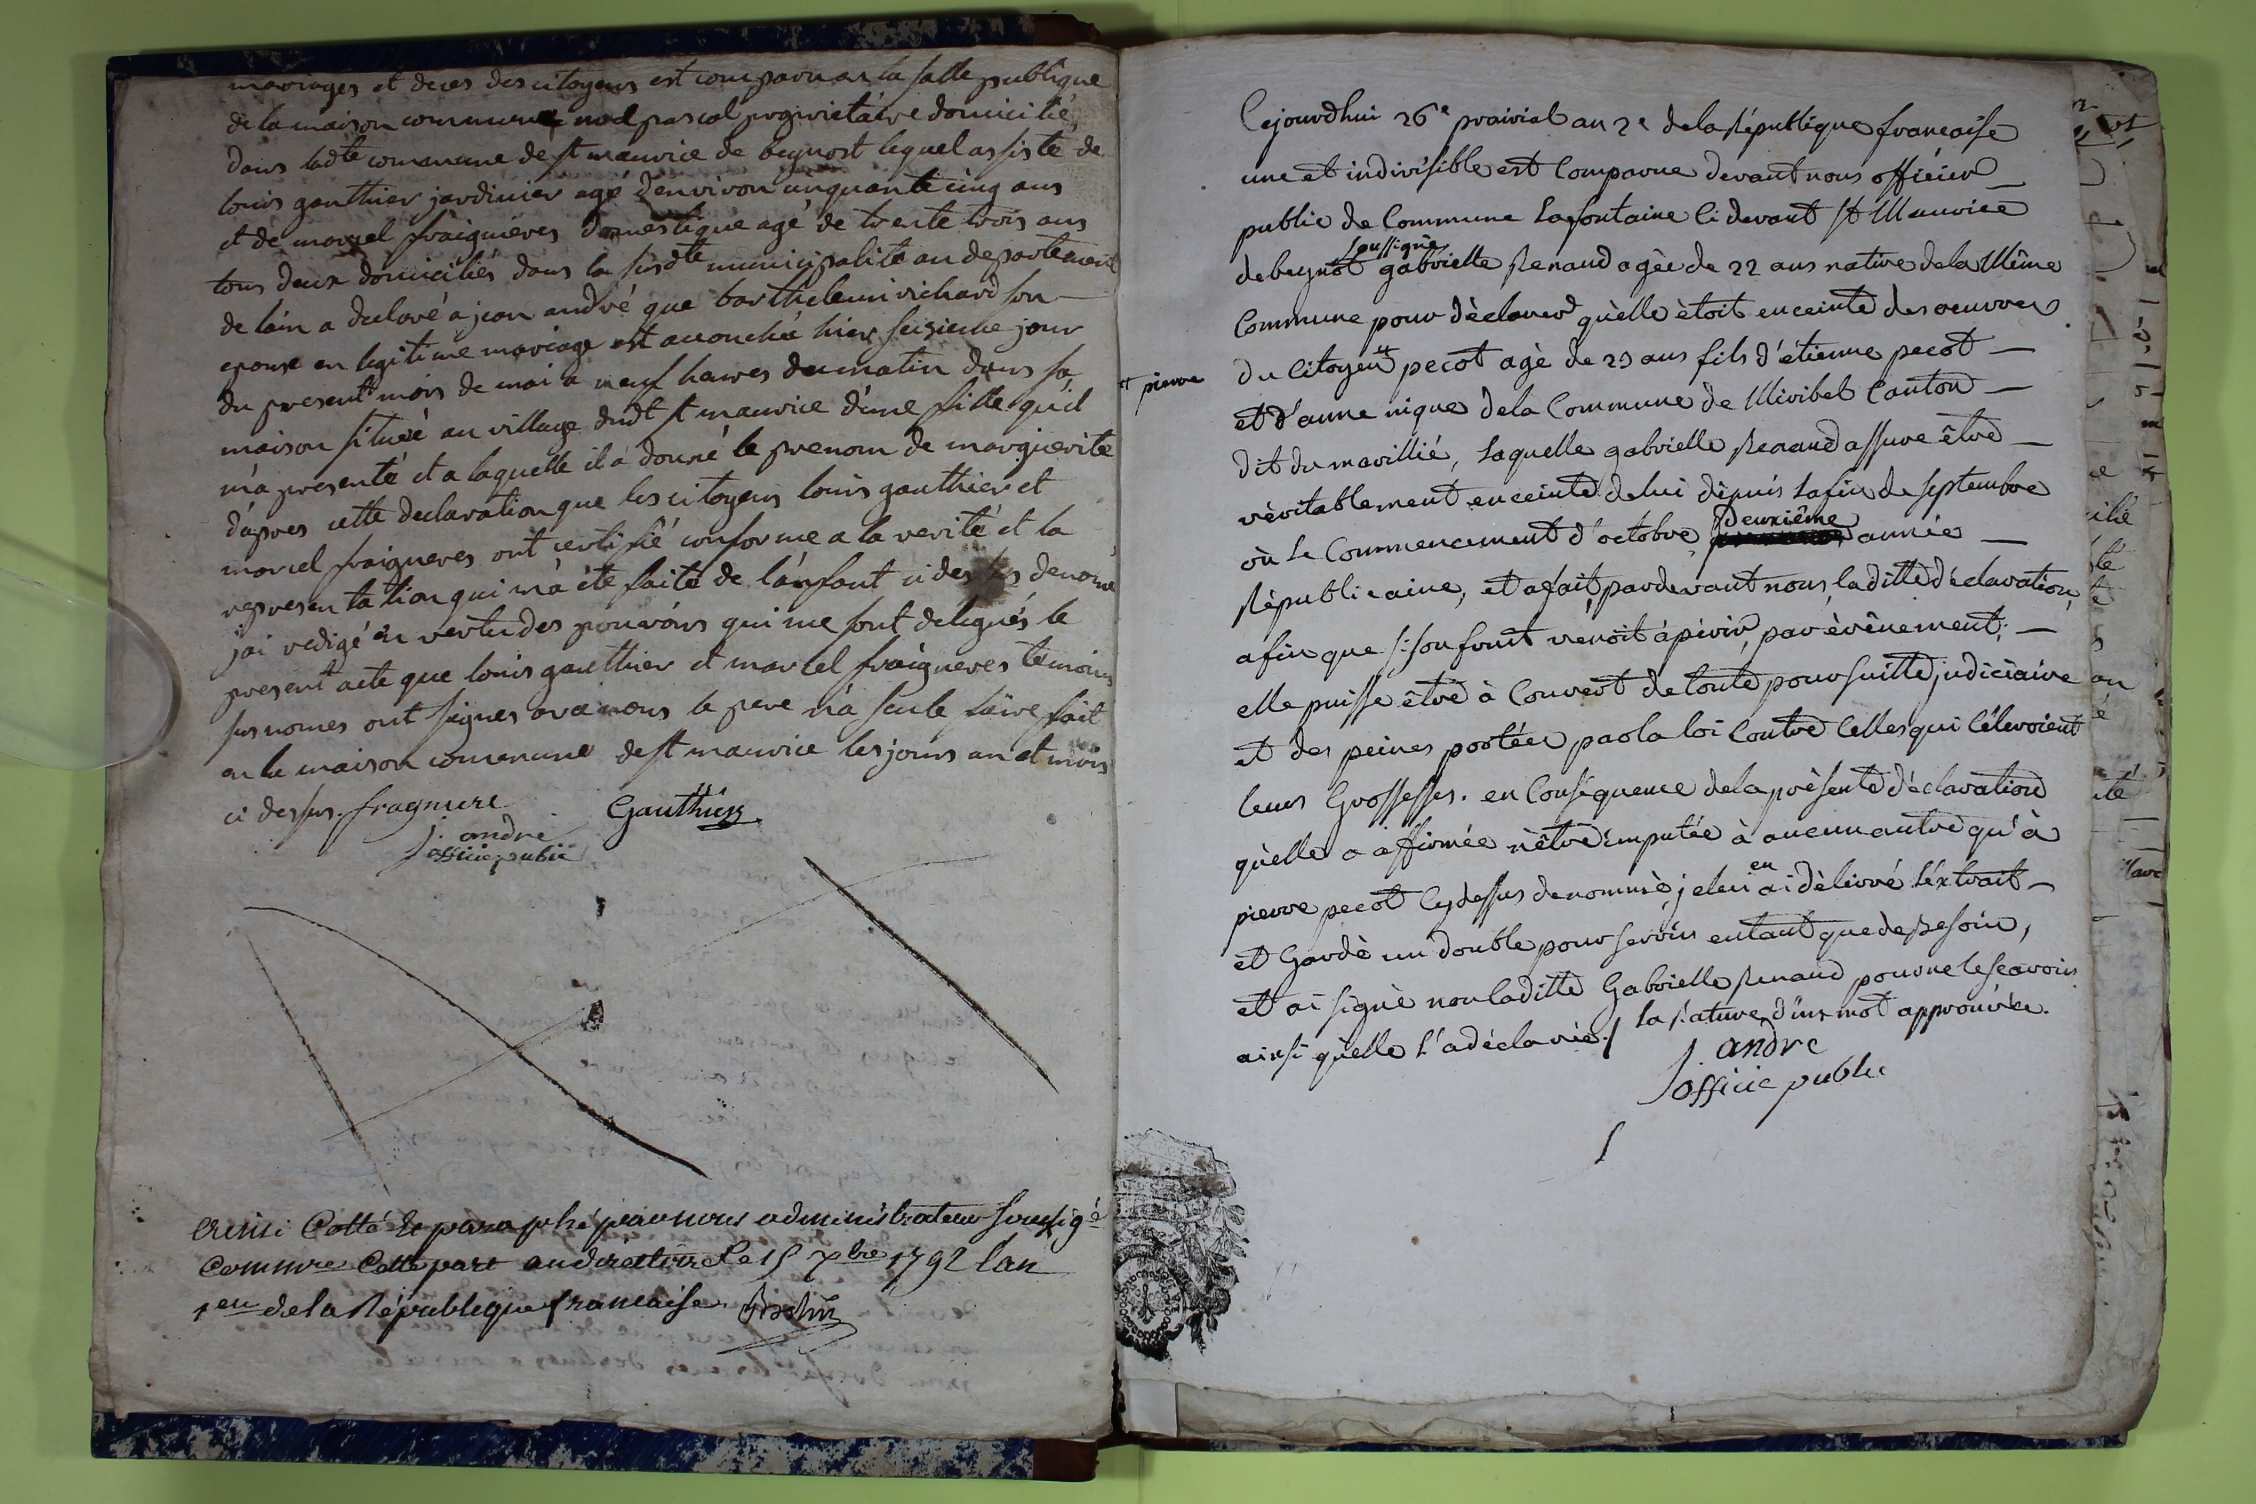 mariages et deces des citoyens est comparu en la salle publique
de la maison commune noel pascal proprietaire domicilié
dans ladte commune de st maurice de beynost lequel assisté de
louis gauthier jardinier agé denviron cinquante cinq ans
et de marcel fraiguieres domestique agé de trente trois ans
tous deux domiciliés dans la susdte municipalité au departement
de lain a declaré a jean andré que barthelemi richard son
epouse en legitime mariage est accouché hier seisieme jour
du present mois de mai a neuf heures du matin dans sa
maison située au village dudt st maurice d'une fille qu'il
m'a presenté et a laquelle il a donné le prenom de marguerite
d'apres cette declaration que les citoyens louis gauthier et
marcel fraigneres ont certifié conforme a la verité et la
representation qui m'a été faite de l'anfant ci dessus denomé
j'ai redigé en vertu des pouvoirs qui me sont delegués le
present acte que louis gauthier et marcel fraigneres temoins
susnomes ont signes avec nous le pere n'a seule faire fait
en la maison commune de st maurice les jours an et mois
ci dessus. fragnere Gauthier
j. andré
officie public
ainsi Cotté et paraphé par nous administrateur soussigé
comme Cette part au directoire le 15 7bre 1792 lan
1er de la République francaise
Cejourdhui 26e prairial an 2e de la République francaise
une et indivisible est Comparue devant nous officier
public de Commune Lafontaine Ci devant St Maurice
soussigné
de beynot gabrielle Renaud agée de 22 ans native de la Même
Commune pour dèclarer qùelle ètoit enceinte des oeuvres
et pierre
du Citoyen pecot agè de 23 ans fils d'étienne pecot
et d'anne nique de la Commune de Miribel Canton
dit du marillié, Laquelle gabrielle Renaud assure être
vèritablement enceinte de lui dèpuis la fin de septembre
deuxième
où le Commencement d'octobre, année
Rèpublicaine, et a fait, pardevant nous, la ditte dèclaration,
afin que si son fruit venoit à pèrir, par èvènement;
elle puisse être à Couvert de toute poursuitte judiciaire
et des peines portées par la loi Contre Celles qui Céleroient
leurs Grossesses. en Consèquence de la prèsente dèclaration
qùelle a affirmée n'être imputée à aucun autre qu'à
pierre pecot Cy dessus denommè, je lui en ai dèlivré L'extrait
et Gardè un double pour servir en tant que de Besoin,
et ai signè non laditte Gabrielle Renaud pour ne le scavoir
ainsi qùelle l'a déclarée./ La rature d'un mot approuvée.
J. andre
officie public